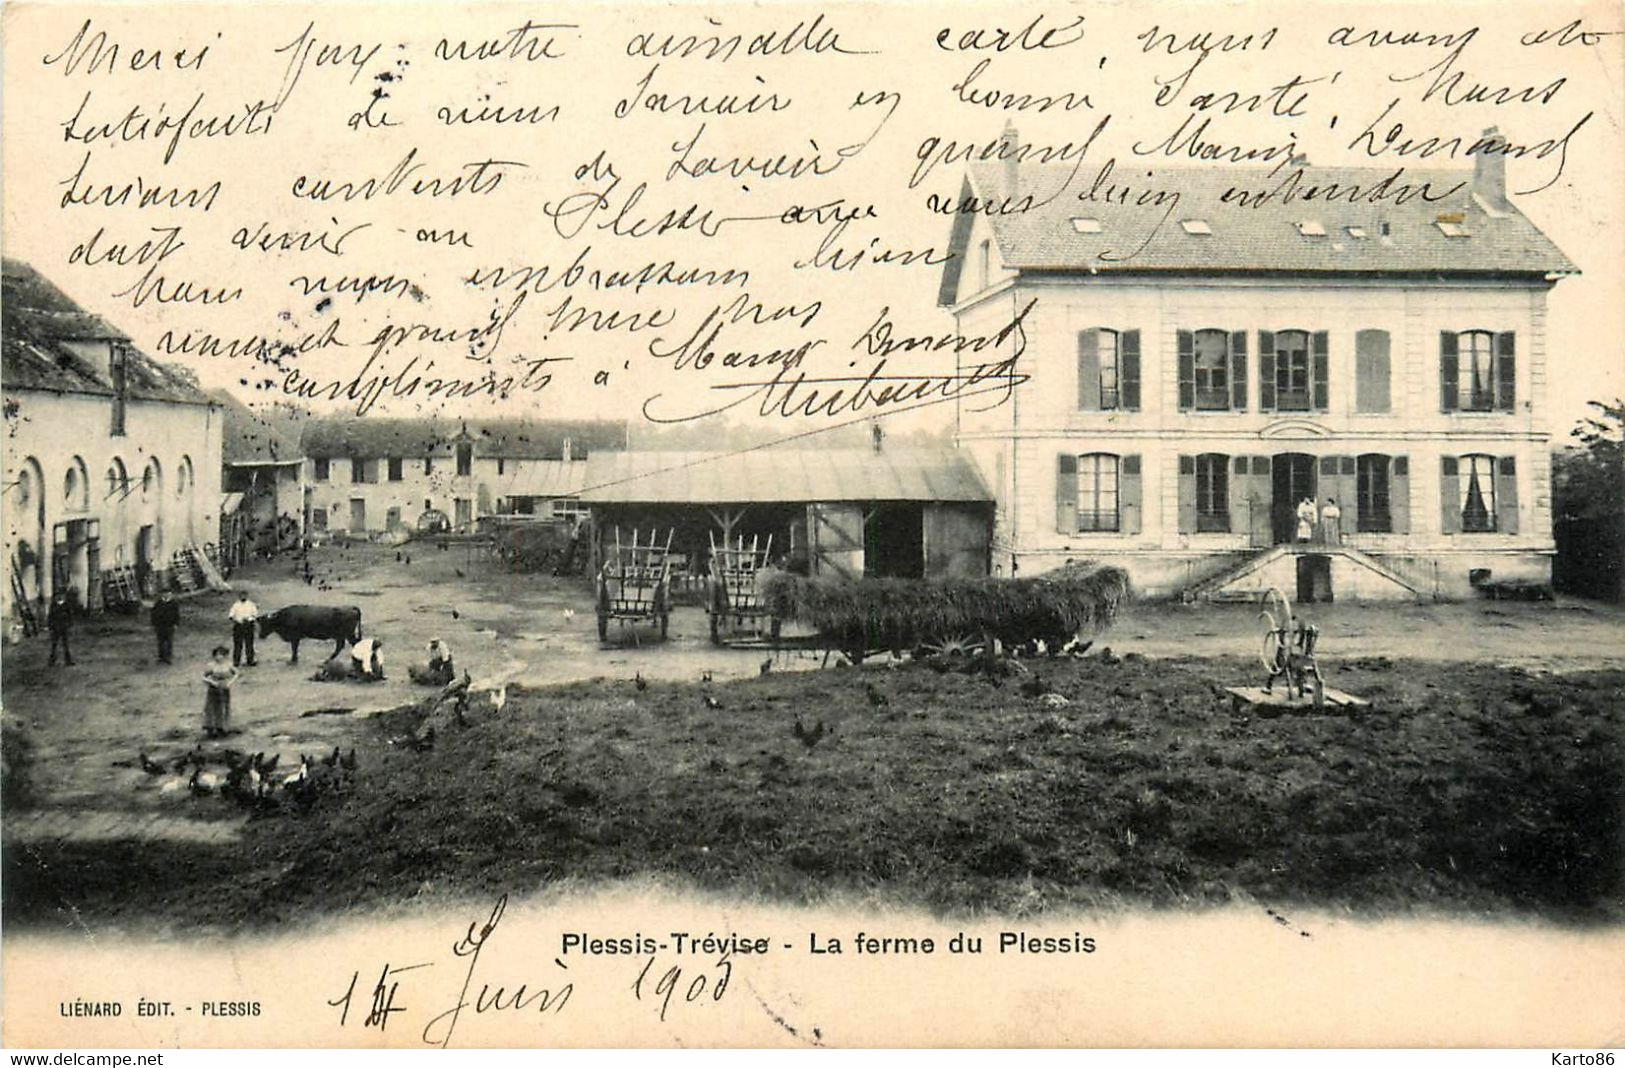 Merci pour votre aimable carte, nous avons été
satisfaits de vous savoir en bonne santé, Nous
serions contents de savoir quand Marie Durand
doit venir au Plessis vous bien entendu
Nous vous embrassons bien
vous et grand mère nos
compliments à Marie Durand
1 Juin 1905
Plessis-Trévise - La ferme du Plessis
LIÉNARD ÉDIT. - PLESSIS
delcampe.net
Karto86